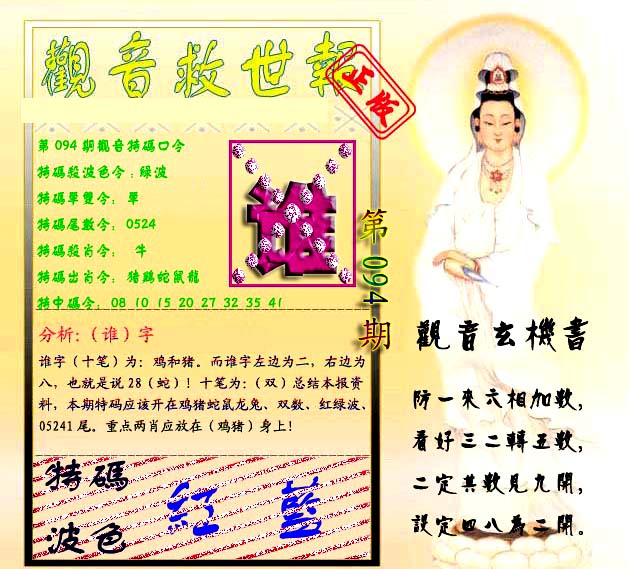 觀音救世報
正版
第 094 期觀音特碼口令
特碼殺波色令：绿波
特碼單雙令： 單
特碼尾數令： 0524
特碼殺肖令： 牛
特碼出肖令： 猪鷄蛇鼠龍
特中碼令： 08 10 15 20 27 32 35 41
谁
第 094 期
分析:（谁）字
谁字（十笔）为：鸡和猪。而谁字左边为二，右边为
八，也就是说 28（蛇）！十笔为：（双）总结本报资
料，本期特码应该开在鸡猪蛇鼠龙兔、双数、红绿波、
05241 尾。重点两肖应放在（鸡猪）身上！
特碼
波色
紅 藍
觀音玄機書
防一來六相加數，
看好三二轉五數，
二定其數見九開，
設定四八為二開。